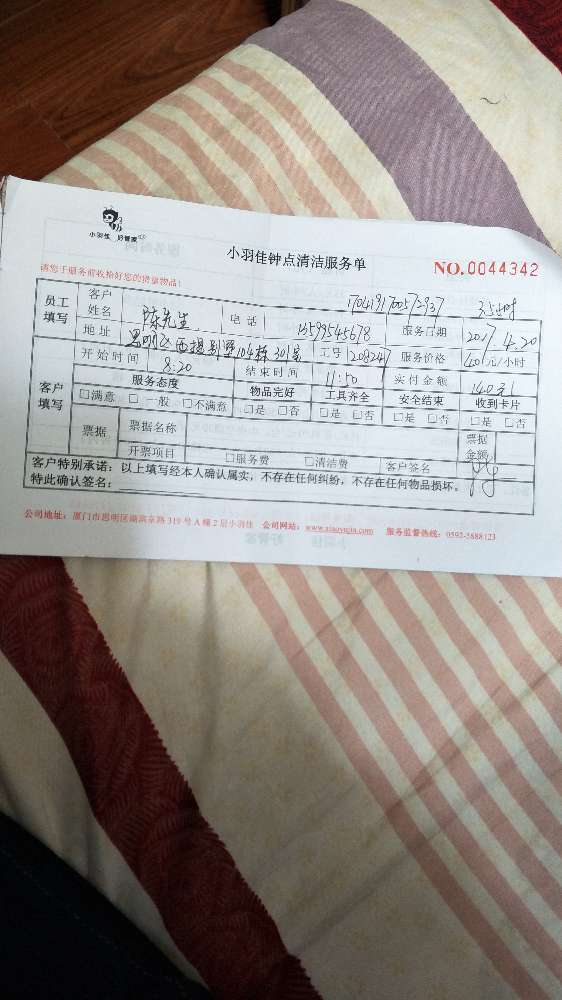 小羽佳 好管家
小羽佳钟点清洁服务单
NO.0044342
请您于服务前收拾好您的贵重物品!
1704191700572937 3.5小时
员工填写 客户姓名 陈先生 电话 13599545678 服务日期 2017.4.20
地址 思明区西堤别墅104栋301室 工号 1208247 服务价格 40元/小时
开始时间 8:20 结束时间 11:50 实付金额 140元
客户填写 服务态度 物品完好 工具齐全 安全结束 收到卡片
□满意 □一般 □不满意 □是 □否 □是 □否 □是 □否 □是 □否
票据 票据名称 票据金额
开票项目 □服务费 □清洁费 客户签名
客户特别承诺:以上填写经本人确认属实,不存在任何纠纷,不存在任何物品损坏。
特此确认签名:
公司地址:厦门市思明区湖滨东路319号A幢2层小羽佳 公司网站:www.xiaoyujia.com 服务监督热线:0592-5888123